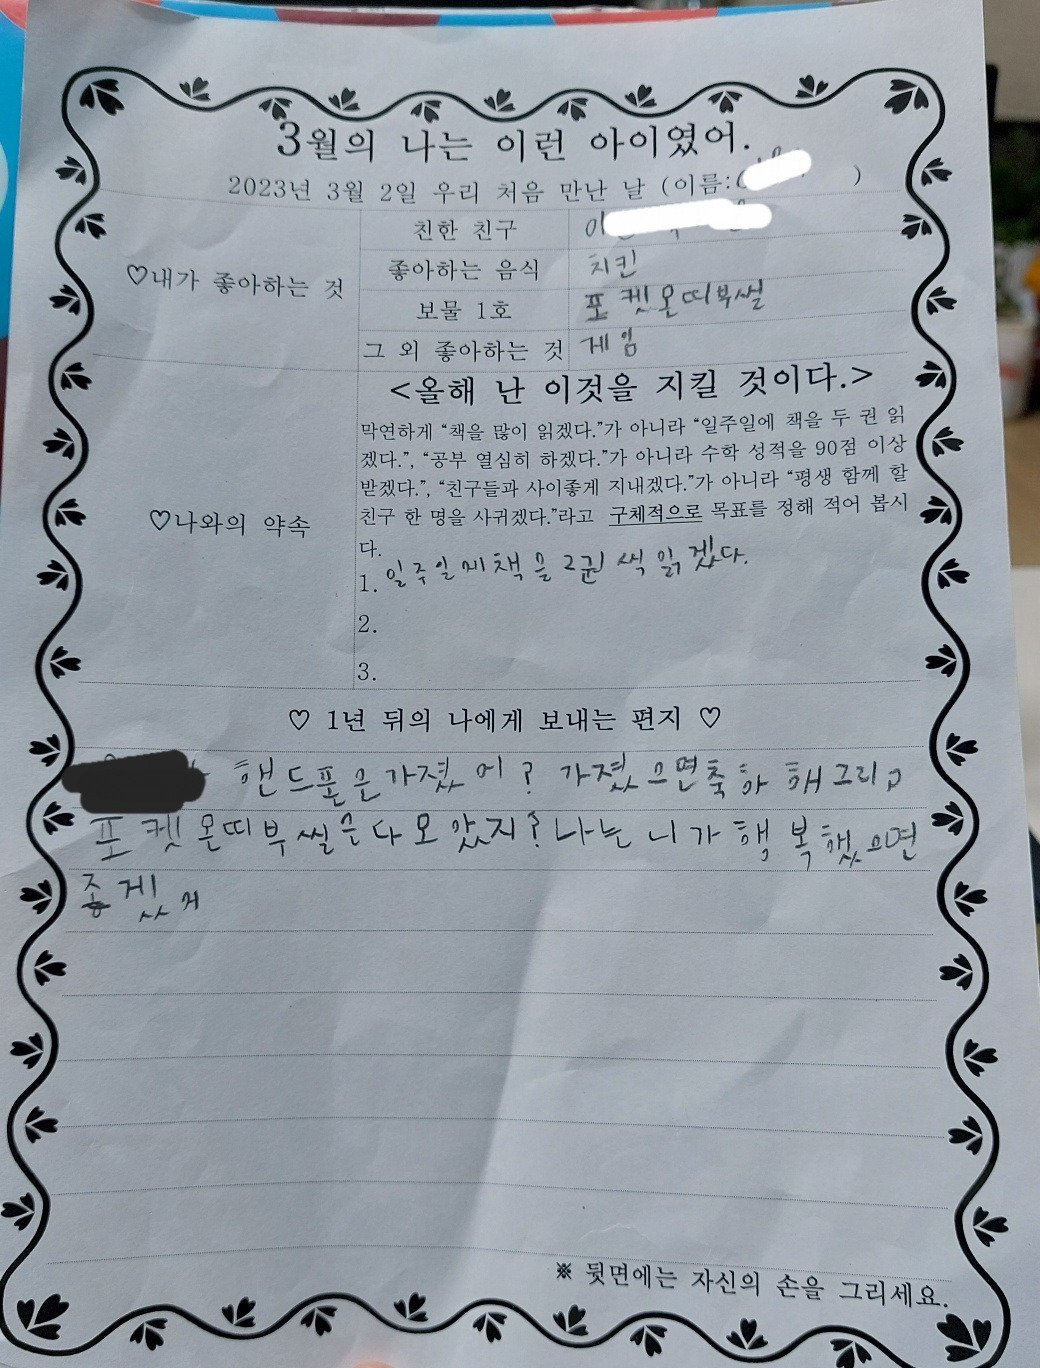 3월의 나는 이런 아이였어.
2023년 3월 2일 우리 처음 만난 날 (이름: )
♡내가 좋아하는 것
친한 친구 이
좋아하는 음식 치킨
보물 1호 포켓몬띠부씰
그 외 좋아하는 것 게임
<올해 난 이것을 지킬 것이다.>
♡나와의 약속
막연하게 “책을 많이 읽겠다.”가 아니라 “일주일에 책을 두 권 읽
겠다.”, “공부 열심히 하겠다.”가 아니라 수학 성적을 90점 이상
받겠다.”, “친구들과 사이좋게 지내겠다.”가 아니라 “평생 함께 할
친구 한 명을 사귀겠다.”라고 구체적으로 목표를 정해 적어 봅시
다.
1. 일주일에 책을 2권 씩 읽겠다.
2.
3.
♡ 1년 뒤의 나에게 보내는 편지 ♡
핸드폰은가졌어? 가졌으면축하해그리고
포켓몬띠부씰은다모았지? 나는 니가 행복했으면
좋겠어
※ 뒷면에는 자신의 손을 그리세요.